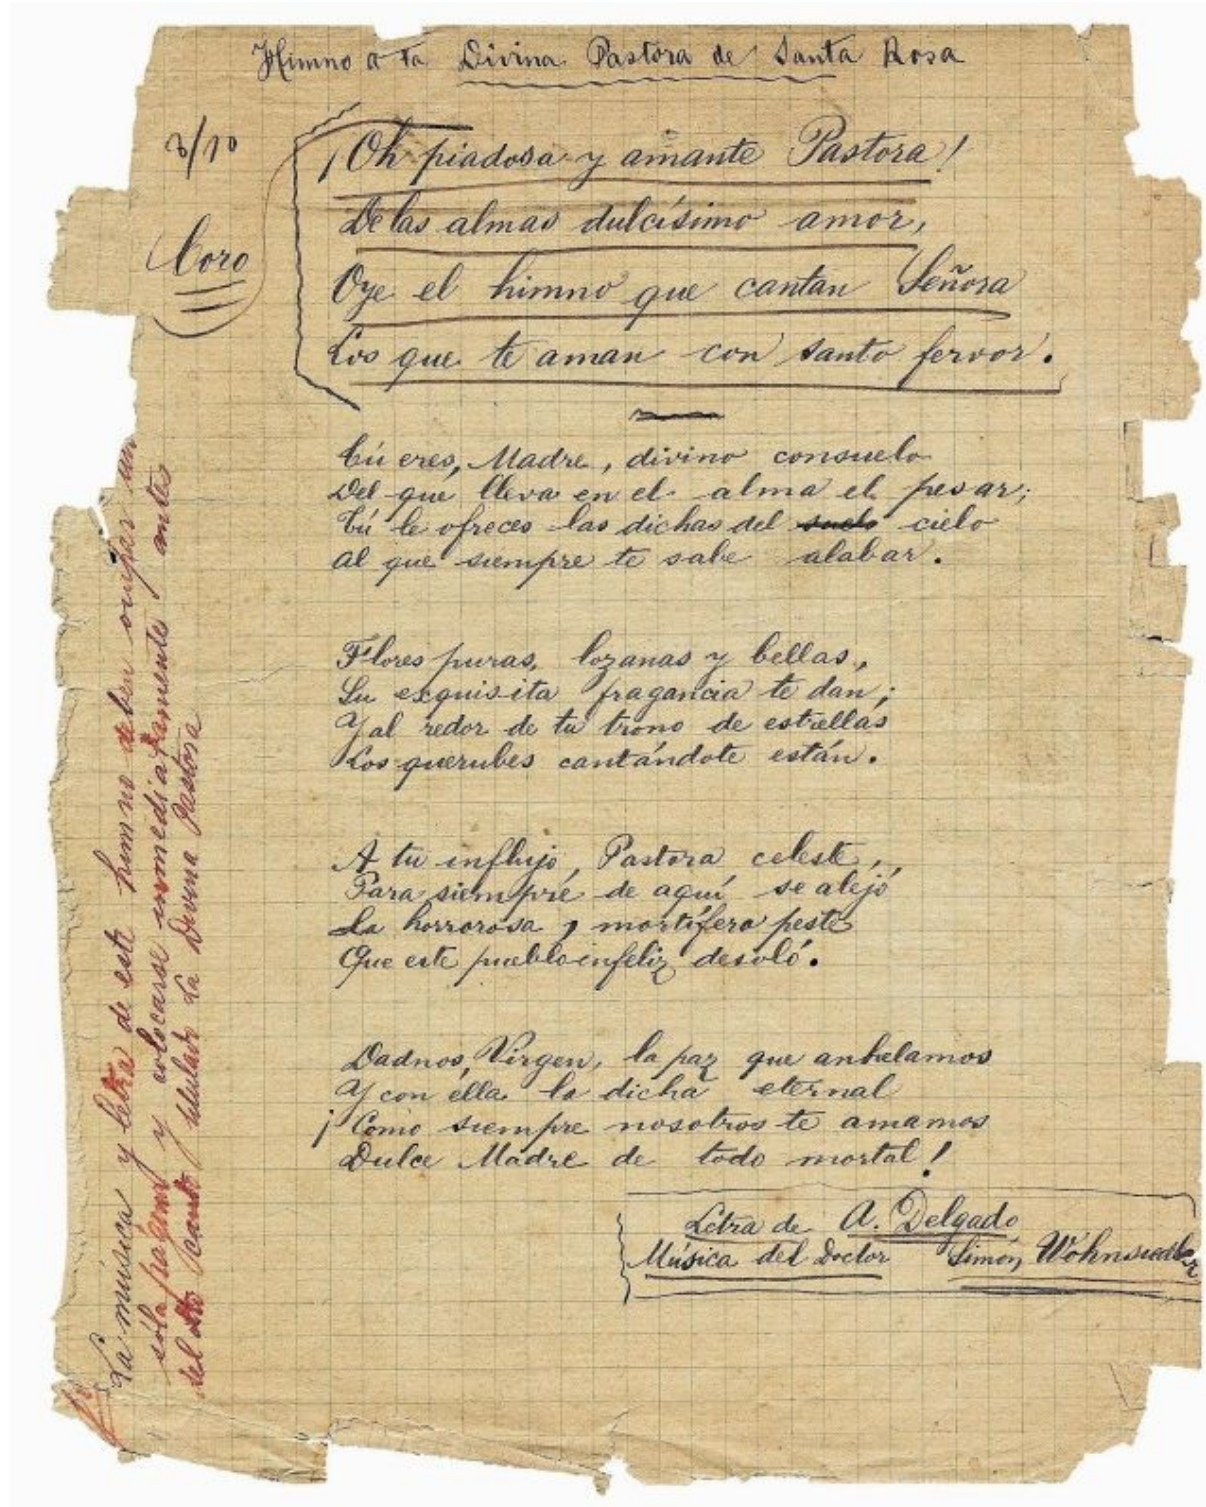 Himno a la Divina Pastora de Santa Rosa
¡Oh piadosa y amante Pastora!
De las almas dulcísimo amor,
Coro
Oye el himno que cantan Señora
Los que te aman con santo fervor.
Tú eres, Madre, divino consuelo
Del que lleva en el alma el pesar;
Tú le ofreces las dichas del suelo cielo
al que siempre te sabe alabar.
Flores puras, lozanas y bellas,
Su exquisita fragancia te dan;
Y al redor de tu trono de estrellas
Los querubes cantándote están.
A tu influjo, Pastora celeste,
Para siempre de aquí se alejó
La horrorosa y mortífera peste
Que este pueblo infeliz desoló.
Dadnos, Virgen, la paz que anhelamos
Y con ella la dicha eternal
¡Como siempre nosotros te amamos
Dulce Madre de todo mortal!
Letra de A. Delgado
Música del Doctor Simón Wohnsiedler
La música y letra de este himno deben ocupar una
sóla página y colocarse inmediatamente antes
del canto titulado La Divina Pastora